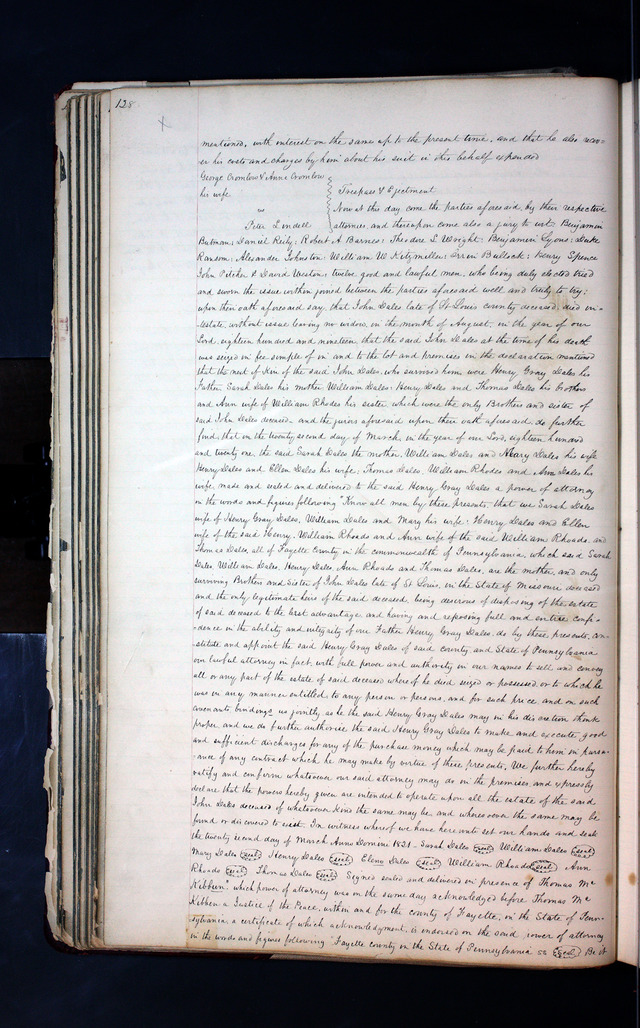 128
mentioned, with interest on the same up to the present time, and that he also recov=
er his costs and charges by him about his suit in this behalf expended
George Cromlow & Anne Cromlow
his wife
Trespass & Ejectment
vs
Peter Lindell
Now at this day come the parties aforesaid, by their respective
attornies and thereupon come also a jury to wit: Benjamin
Batman; Daniel Reily; Robert A Barnes; Theodore L. Wright; Benjamin Lyons; Duke
Ransom; Alexander Johnston; William W Kitzmiller; Orrin Bullock; Henry Spence
John Pitcher & David Weston; twelve good and lawful men, who being duly elected tried
and sworn the issue within joined between the parties aforesaid well and truly to try;
upon their oath aforesaid say, that John Dales late of St Louis county deceased, died in=
testate, without issue leaving no widow, in the month of August, in the year of our
Lord, eighteen hundred and nineteen, that the said John Dales at the time of his death
was seized in fee simple of in and to the lot and premises in the declaration mentioned
that the next of Kin of the said John Dales, who survived him were Henry Gray Dales his
Father, Sarah Dales his mother William Dales, Henry Dales and Thomas Dales his brothers
and Ann wife of William Rhodes his sister which were the only Brothers and sister of
said John Dales deceased and the jurors aforesaid upon their oath aforesaid, do further
find, that on the twenty second day of March, in the year of our Lord, eighteen hundred
and twenty one, the said Sarah Dales the mother, William Dales and Mary Dales his wife
Henry Dales and Ellen Dales his wife; Thomas Dales, William Rhodes and Ann Dales his
wife, made and sealed and delivered to the said Henry Gray Dales a power of attorney
in the words and figures following "Know all men by these presents, that we Sarah Dales
wife of Henry Gray Dales, William Dales and Mary his wife; Henry Dales and Ellen
wife of the said Henry, William Rhoads and Ann wife of the said William Rhoads, and
Thomas Dales, all of Fayette County in the commonwealth of Pennsylvania, which said Sarah
Dales, William Dales, Henry Dales, Ann Rhoads and Thomas Dales, are the mother, and only
surviving Brothers and Sister of John Dales late of St Louis, in the State of Missouri deceased
and the only legitimate heirs of the said deceased, being desirous of disposing of the estate
of said deceased to the best advantage, and having and reposing full and entire confi=
dence in the ability and integrity of our Father Henry Gray Dales, do by these presents, con=
stitute and appoint the said Henry Gray Dales of said county and State of Pennsylvania
our lawful attorney in fact, with full power and authority in our names to sell and convey
all or any part of the estate of said deceased where of he died seized or possessed, or to which he
was in any manner entitled, to any person or persons, and for such price and on such
covenants binding us jointly, as he the said Henry Gray Dales may in his discretion think
proper and we do further authorise the said Henry Gray Dales to make and execute, good
and sufficient discharges for any of the purchase money which may be paid to him in pursu=
ance of any contract which he may make by virtue of these presents. We further hereby
ratify and confirm whatsoever our said attorney may do in the premises and expressly
declare that the powers hereby given are intended to operate upon all the estate of the said
John Dales deceased of whatsoever kind the same may be and wheresoever the same may be
found or discovered to exist. In witness whereof we have hereunto set our hands and seals
the twenty second day of March Anno Domini 1821. Sarah Dales (seal) William Dales (seal)
Mary Dales (seal) Henry Dales (seal) Elena Dales (seal) William Rhoads (seal) Ann
Rhoads (seal) Thomas Dales (seal) Signed sealed and delivered in presence of Thomas Mc
Kibben", which power of attorney was on the same day acknowledged before Thomas Mc
Kibben a Justice of the Peace, within and for the county of Fayette, in the State of Penn=
sylvania; a certificate of which acknowledgment, is endorsed on the said power of attorney
in the words and figures following "Fayette county in the State of Pennsylvania ss (seal) Be it